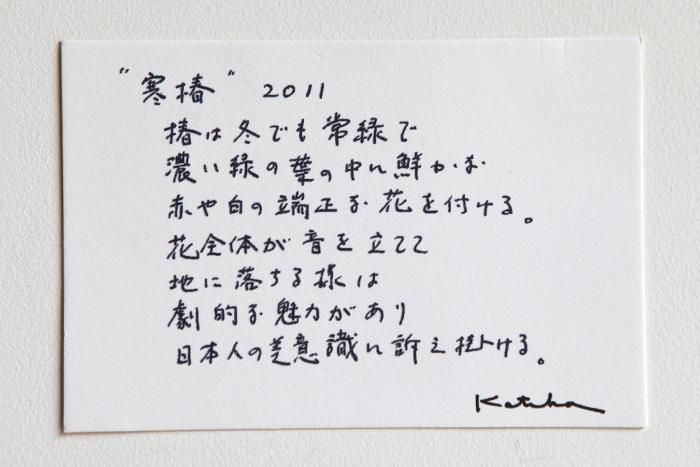 "寒椿" 2011
椿は冬でも常緑で
濃い緑の葉の中に鮮かな
赤や白の端正な花を付ける。
花全体が音を立てて
地に落ちる様は
劇的な魅力があり
日本人の美意識に訴え掛ける。